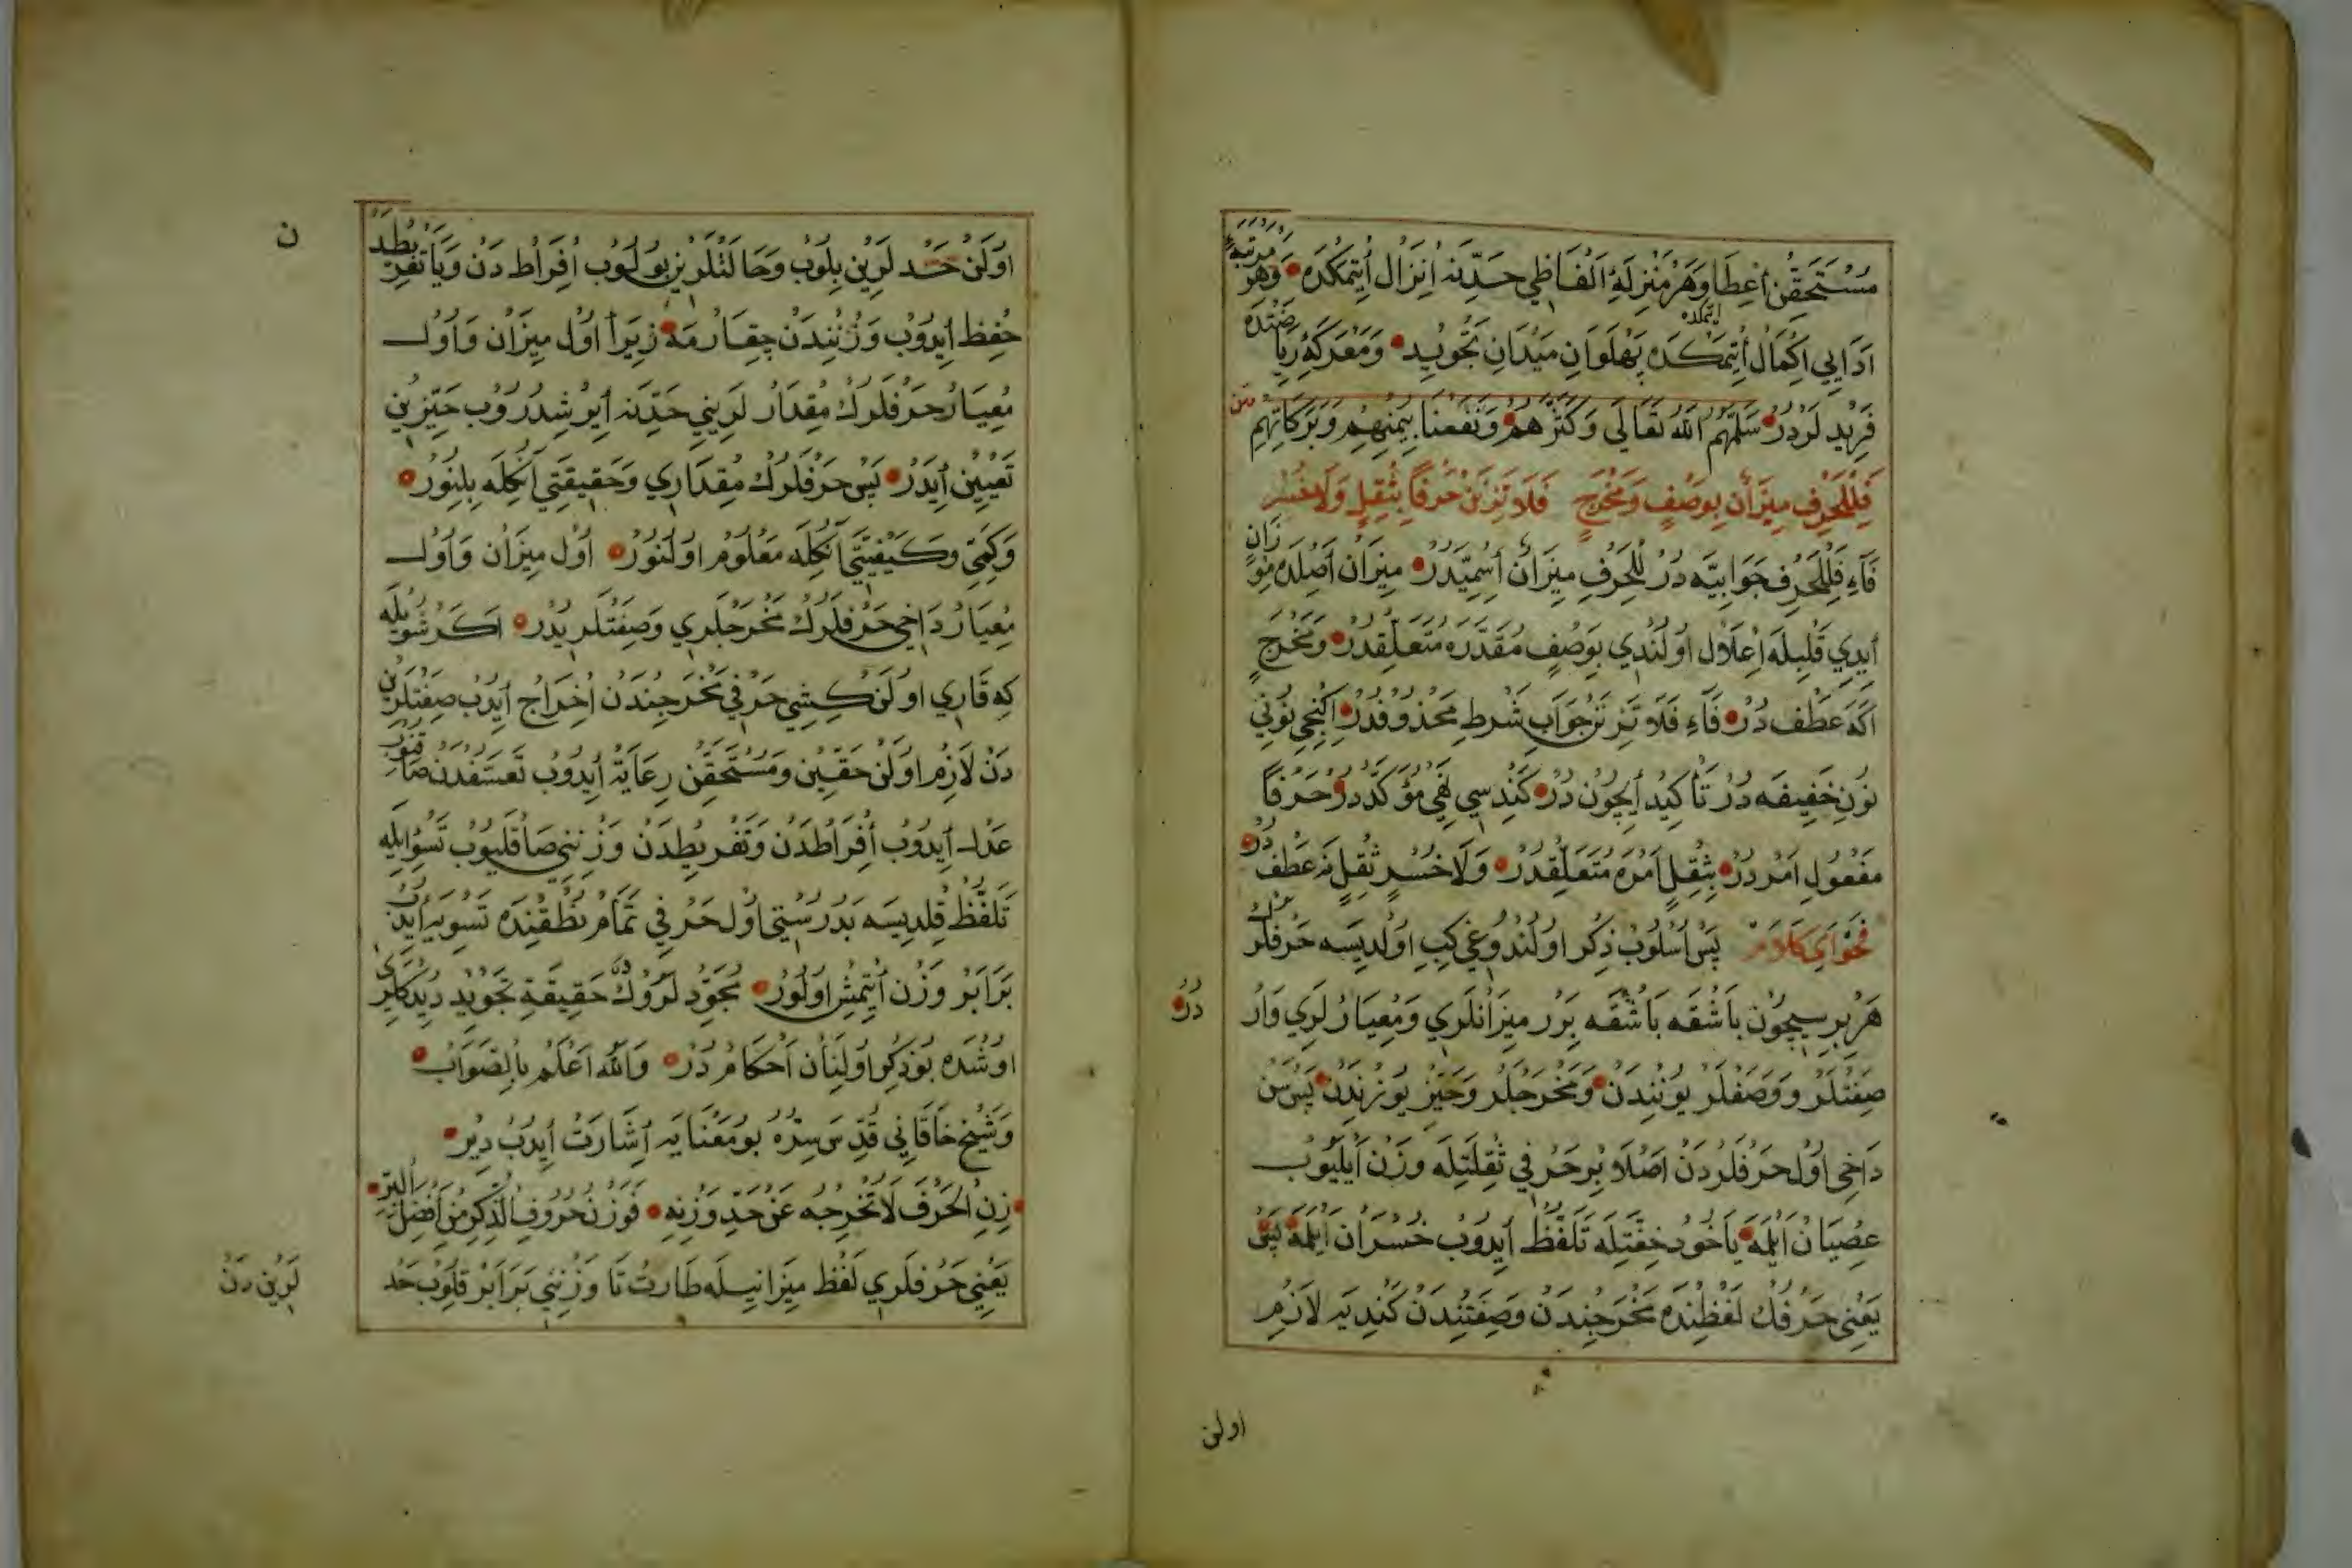 مُسْتَحَقِّنْ اِعْطَا وَهَرْ مَنْزِلَهٔ اَلْفَاظِي حَدِّنَه اِنْزَالْ اِتْمَكْدَه وَهَرْ مَرْتَبَهٔ
اَدَايِي اِكْمَالْ اِتْمَكْدَه پَهْلَوَانِ مَيْدَانِ تَجْوِيدْ وَمَعْرَكَهٔ رِيَاضَتْدَه
فَرِيدْ لَرْدُرْ سَلَّمَهُمُ اللّٰهُ تَعَالَى وَكَثَّرَهُمْ وَنَفَعَنَا بِيُمْنِهِمْ وَبَرَكَاتِهِمْ
متن
فَلِلْحَرْفِ مِيزَانٌ بِوَصْفٍ وَمَخْرَجٍ فَلَا تَزِنَنْ حَرْفًا بِثِقْلٍ وَلَا خُسْرٍ
فَاءِ فَلِلْحَرْفِ جَوَابِيَّه دُرْ لِلْحَرْفِ مِيزَانٌ اِسْمِيَّدُرْ مِيزَانْ اَصْلِدَه مِوْزَانْ
اِيدِي قَلْبِيلَه اِعْلَالْ اُولُنْدِي بِوَصْفٍ مُقَدَّرَه مُتَعَلِّقْدُرْ وَمَخْرَجٍ
اَكَه عَطْف دُرْ فَاءِ فَلَا تَزِنَنْ جَوَابِ شَرْطِ مَحْذُوفْدُرْ اِكِنْجِي نُونِي
نُونِ خَفِيفَه دُرْ تَأْكِيدْ اِيچُونْ دُرْ كَنْدِسِي نَهْيِ مُؤَكَّدْدُرْ حَرْفًا
مَفْعُولِ اَمْرْدُرْ بِثِقْلٍ اَمْرَه مُتَعَلِّقْدُرْ وَلَا خُسْرٍ ثِقْلٍ نَه عَطْفْدُرْ
فَحْوَايِ كَلَامْ پَسْ اُسْلُوبْ ذِكْر اُولُنْدُوغِي كِبِي اُولِدِيسَه حَرْفْلَرُكْ
هَرْ بِرِيسِيچُونْ بَاشْقَه بَاشْقَه بِرَرْ مِيزَانْلَرِي وَمِعْيَارْلَرِي وَارْ
دُرْ
صِفَتْلَرْ وَوَصْفْلَرْ يُونِنْدَنْ وَمَخْرَجْلَرْ وَحَيِّزْ يُوزِنْدَنْ پَسْ سَنْ
دَاخِي اُولْ حَرْفْلَرْدَنْ اَصْلَا بِرْ حَرْفِي ثِقْلَتِلَه وَزْنْ اَيْلَيُوبْ
عِصْيَانْ اَيْلَمَه يَاخُودْ خِفَّتِلَه تَلَفُّظْ اِيدُوبْ خُسْرَانْ اَيْلَمَه
يَعْنِي حَرْفُكْ لَفْظِنْدَه مَخْرَجِنْدَنْ وَصِفَتِنْدَنْ كَنْدِيَه لَازِمْ
اولن
ن
اُولَنْ حَدْلَرِينْ بِلُوبْ وَحَالَتْلَرِينْ بُولُوبْ اِفْرَاطْدَنْ وَيَا تَفْرِيطْدَنْ
حِفْظ اِيدُوبْ وَزْنِنْدَنْ چِقَارْمَه زِيرَا اُولْ مِيزَانْ وَاُولْ
مِعْيَارْ حَرْفْلَرُكْ مِقْدَارْلَرِينِي حَدِّنَه اِيرُشْدِرُوبْ حَيِّزِينْ
تَعْيِينْ اِيدَرْ پَسْ حَرْفْلَرُكْ مِقْدَارِي وَحَقِيقَتِي اَنُكِلَه بِلِنُورْ
وَكَمِّيَّتِي وَكَيْفِيَّتِي اَنُكِلَه مَعْلُومْ اُولُنُورْ اُولْ مِيزَانْ وَاُولْ
مِعْيَارْ دَاخِي حَرْفْلَرُكْ مَخْرَجْلَرِي وَصِفَتْلَرِيدُرْ اَكَرْ شُويْلَه
كِه قَارِي اُولَنْ كِشِي حَرْفِي مَخْرَجِنْدَنْ اِخْرَاجْ اِيدُبْ صِفَتْلَرِينْ
دَنْ لَازِمْ اُولَنْ حَقِّينْ وَمُسْتَحَقِّنْ رِعَايَةْ اِيدُوبْ تَعَسُّفْدَنْ صَاقِنُوبْ
عَدْلْ اِيدُوبْ اِفْرَاطْدَنْ وَتَفْرِيطْدَنْ وَزْنِنِي صَاقْلَيُوبْ تَسْوِيَلَه
تَلَفُّظْ قِلْدِيسَه بَدْرُسْتِي اُولْ حَرْفِي تَمَامْ نُطْقِنْدَه تَسْوِيَه اِيدُبْ
بَرَابَرْ وَزْن اِتْمِشْ اُولُورْ مُجَوِّدْلَرُوكْ حَقِيقَةِ تَجْوِيدْ دِيدِكْلَرِي
اُوشْدَه بُو ذِكْر اُولِنَانْ اَحْكَامْدُرْ وَاللّٰهُ اَعْلَمُ بِالصَّوَابْ
وَشَيْخْ خَاقَانِي قُدِّسَ سِرُّهُ بُو مَعْنَايَه اِشَارَتْ اِيدُبْ دِيرْ
زِنِ الْحَرْفَ لَا تُخْرِجْهُ عَنْ حَدِّ وَزْنِهِ فَوَزْنُ حُرُوفِ الذِّكْرِ مِنْ اَفْضَلِ الْبِرِّ
يَعْنِي حَرْفْلَرِي لَفْظ مِيزَانِيلَه طَارْتْ تَا وَزْنِنِي بَرَابَرْ قِلُوبْ حَدْ
لَرِينْ دَنْ